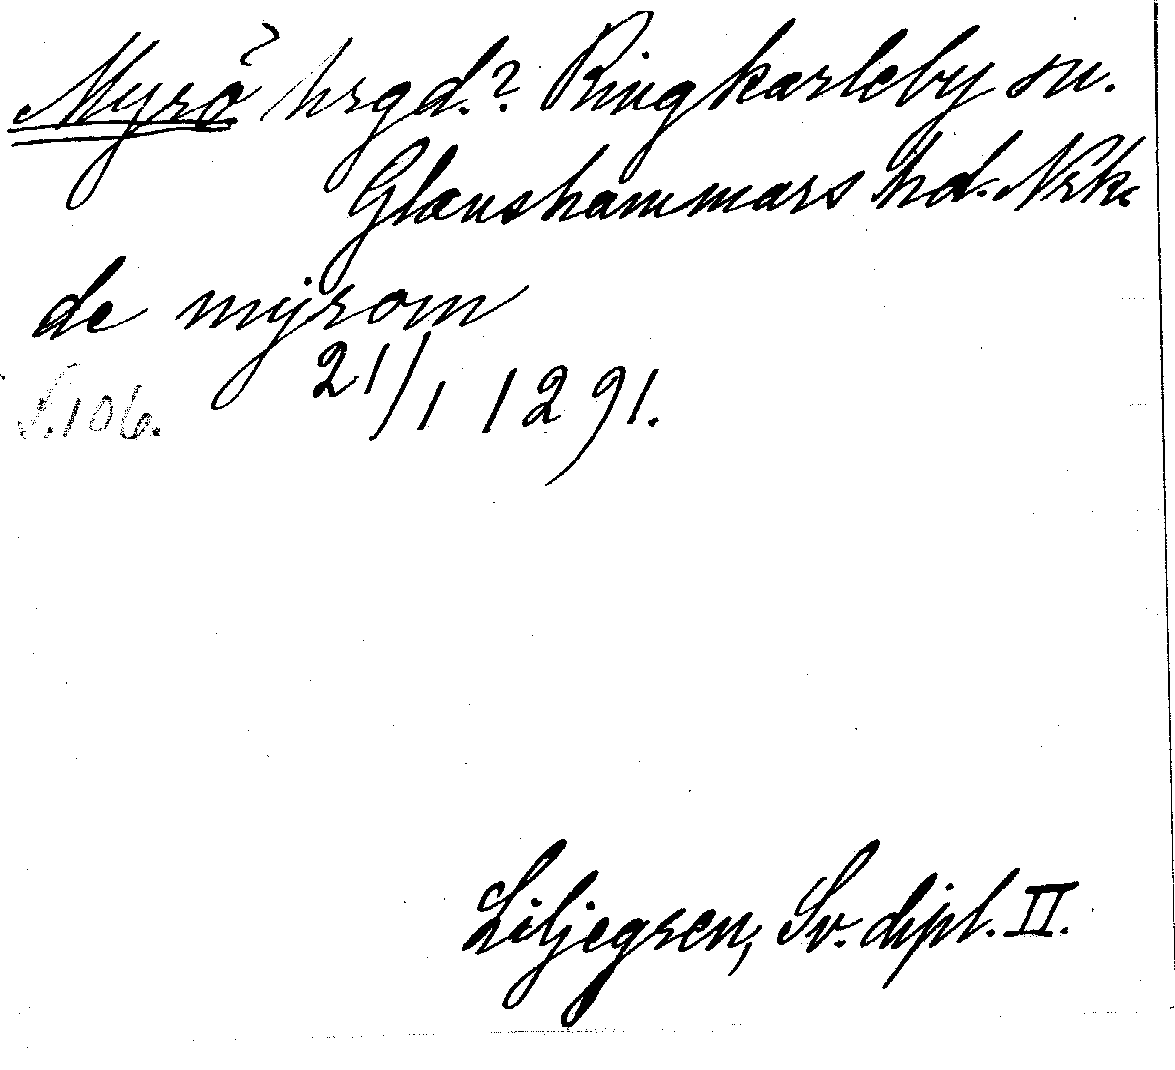 Myrö? hrgd.? Ringkarleby sn.
Glanshammars hd. Nrk.
de myrom
21/1 1291.
S. 106.
Liljegren, Sv. dipl. II.